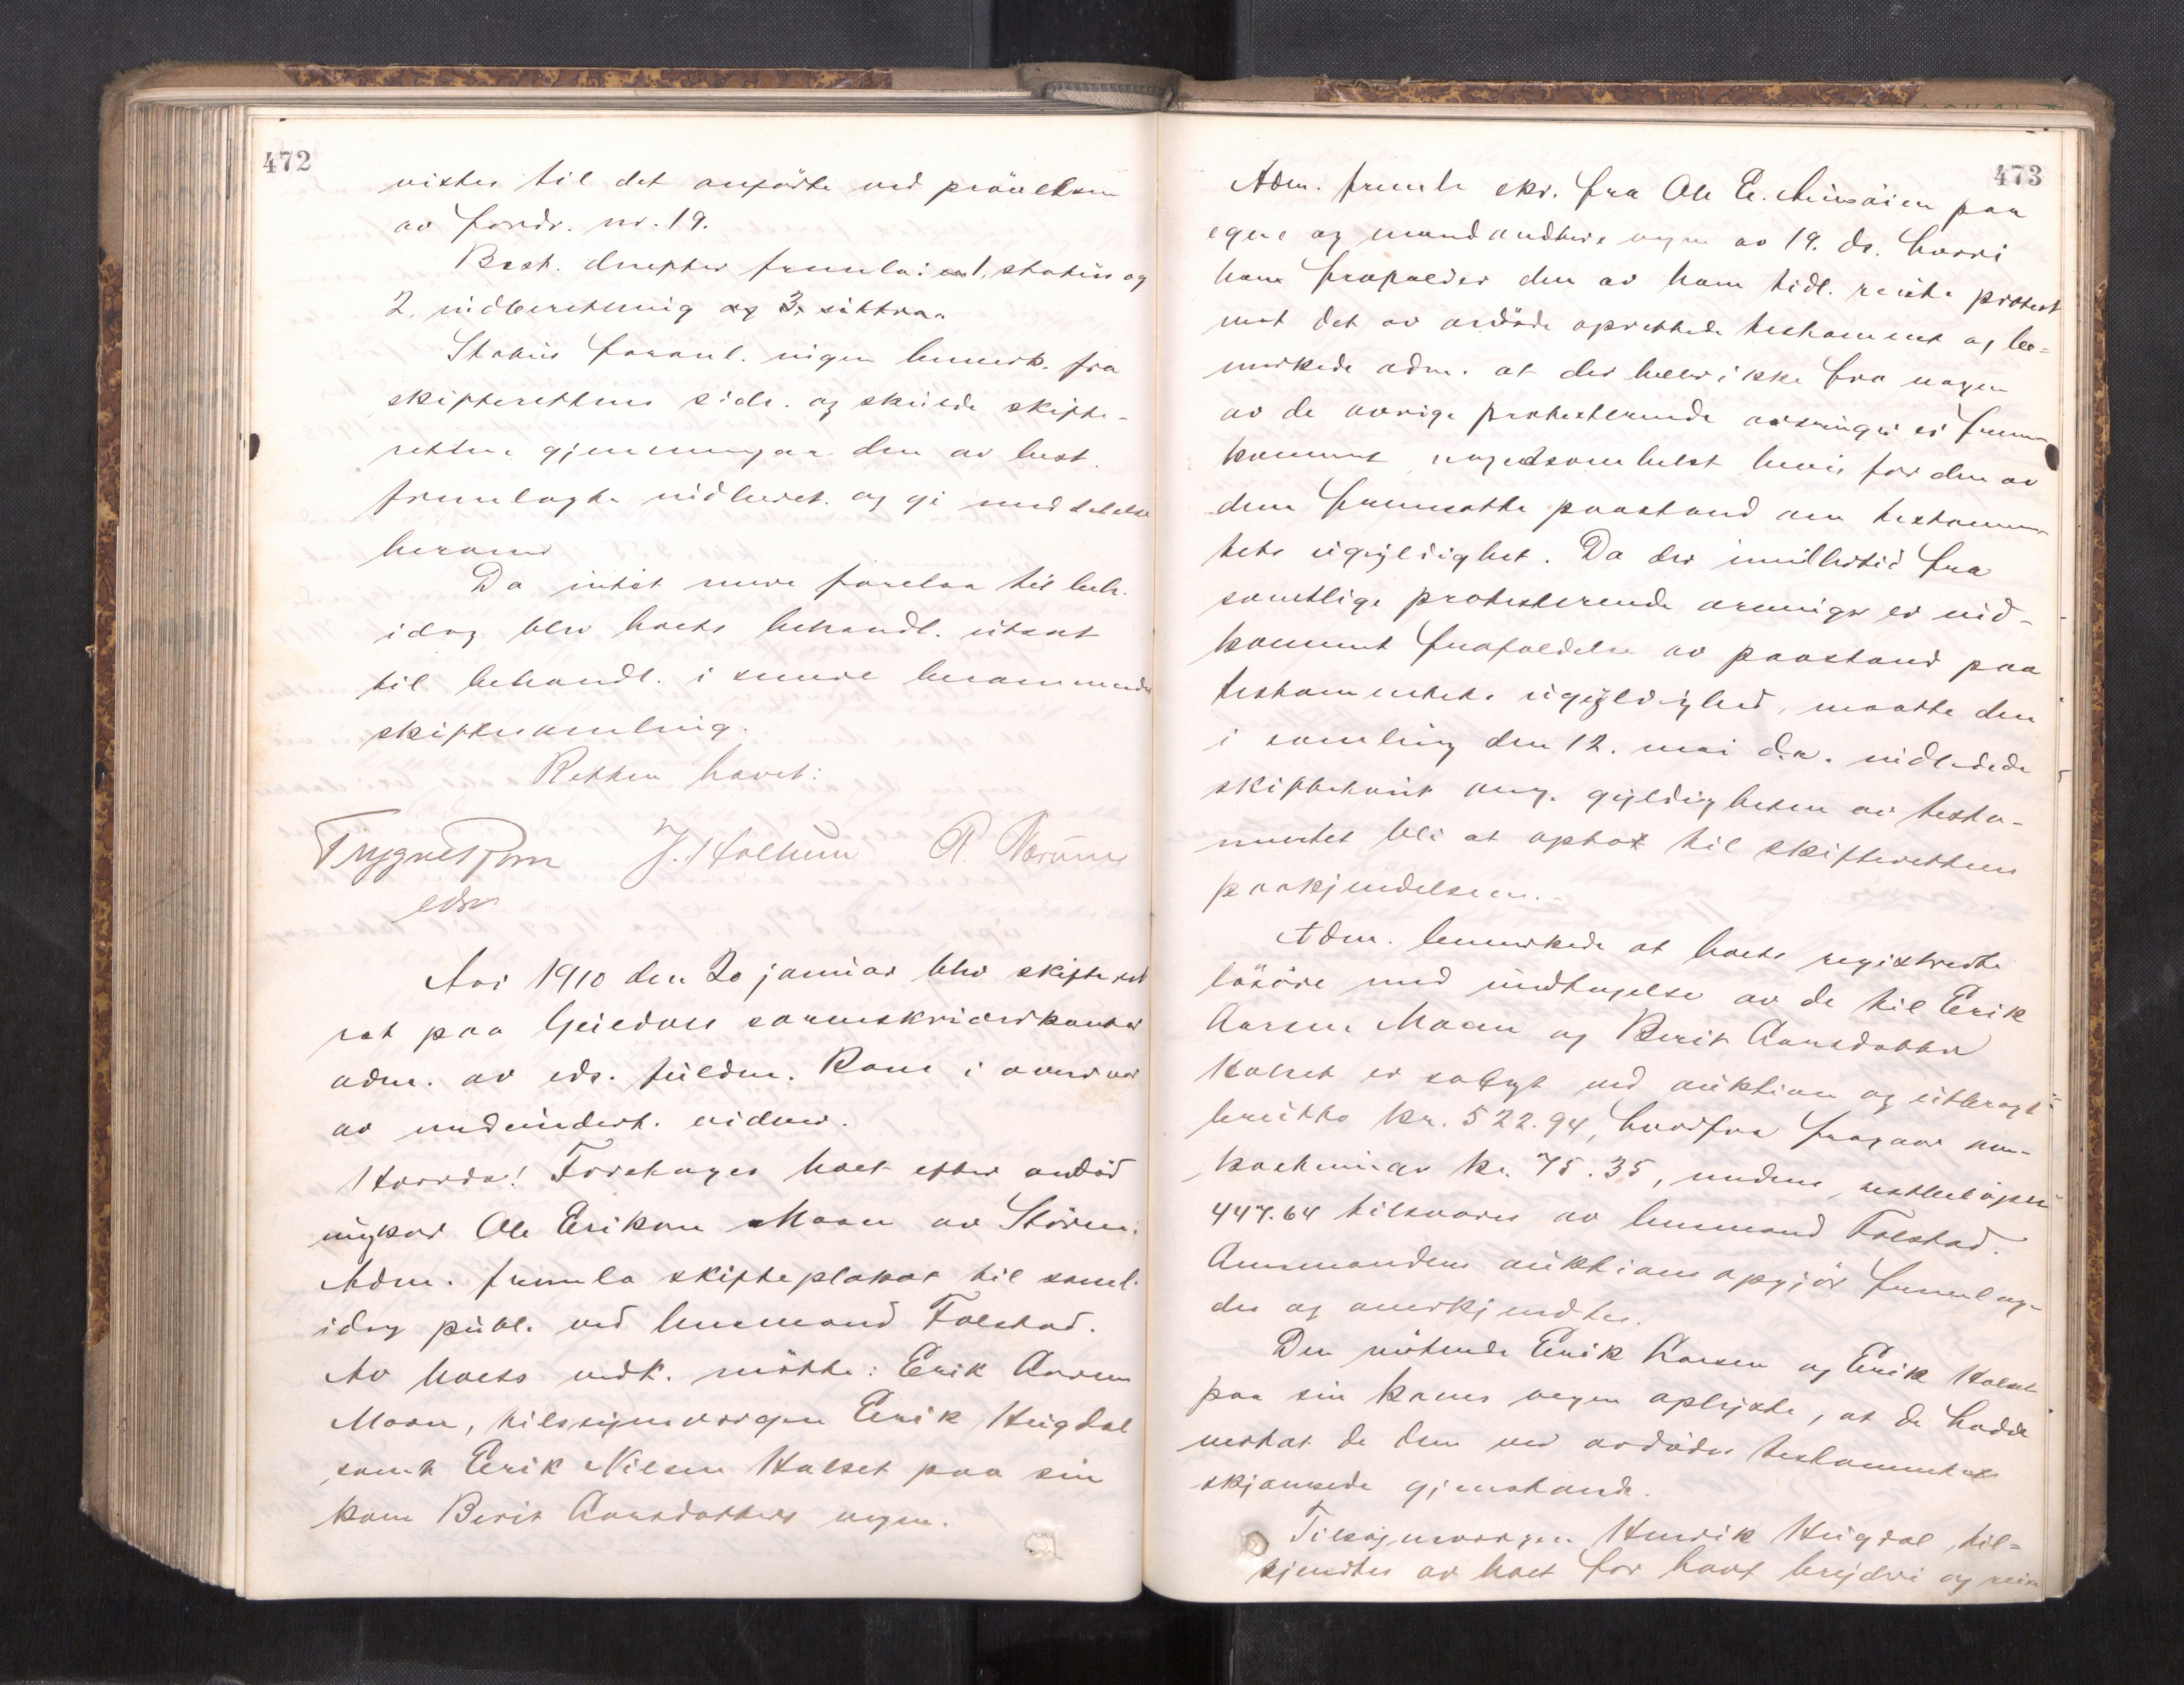 472
vistes til det anførte ved prøvelsen
av fordr. nr. 19.
Best. derefter fremla: 1, status og
2, indberetning og 3,
Status foranl. ingen bemerk. fra
skifterettens side. og skulde skifte-
retten gjennemgaa den av best.
fremlagte indberet. og gi meddelelse
herom
Da intet mere forelaa til beh.
idag blev boets behandl. utsat
til behandl. i senere berammende
skiftesamling.
Retten hævet:
J. Holthum
edsv
Aar 1910 den 20 januar blev skifteret
sat paa Guldal sorenskriverkontor
adm. av eds. fuldm. Rom i overvær
av undertegnede vidner.
Hvorda! Foretages boet efter avdød
ungkar Ole Eriksen Moan av Støren.
Adm. fremla skifteplakat til saml.
idag publ. ved lensmand Folstad.
Av boets vedk. møtte: Erik Aarsen
Moan, tilsynsvergen Henrik Hugdal
samt Erik Nilsen Halset paa sin
kone Berit Aarsdatters vegne.
473
Adm. fremla skr. fra Ole E. paa
egne og mandanters vegne av 19. ds. hvori
han frafalder den av ham tidl. reiste protest
mot det av avdøde oprettede testament og be-
merkede adm. at der heller ikke fra nogen
av de øvrige protesterende arvinger er frem
kommet nogetsomhelst bevis for den av
dem fremsatte paastand om testamen-
tets ugyldighet. Da der imidlertid fra
samtlige protesterende arvinger er ind-
kommet frafaldelse av paastand paa
testamentets ugyldighed, maatte den
i samling den 12. mai d.a. indledede
skiftetvist ang. gyldigheten av testa-
mentet bli at opta til skifterettens
paakjendelse.
Adm. bemerkede at boets registrerte
løsøre med undtagelse av de til Erik
Aarsen Moan og Berit Aarsdatter
Halset er solgt ved auktion og utbragt
brutto kr. 522.94, hvorfra fragaar om-
kostninger kr. 75.35, medens restbeløpet
447.64 tilsvares av lensmand Folstad.
Lensmandens auktionsopgjør fremlag-
des og anerkjendtes.
Den møtende Erik Aarsen og Erik Halset
paa sin kones vegne oplyste, at de hadde
mottat de dem ved avdødes testamentet
skjænkede gjenstande.
Tilsynsvergen Henrik Hugdal til-
kjendtes av boet for havt bryderi og reise